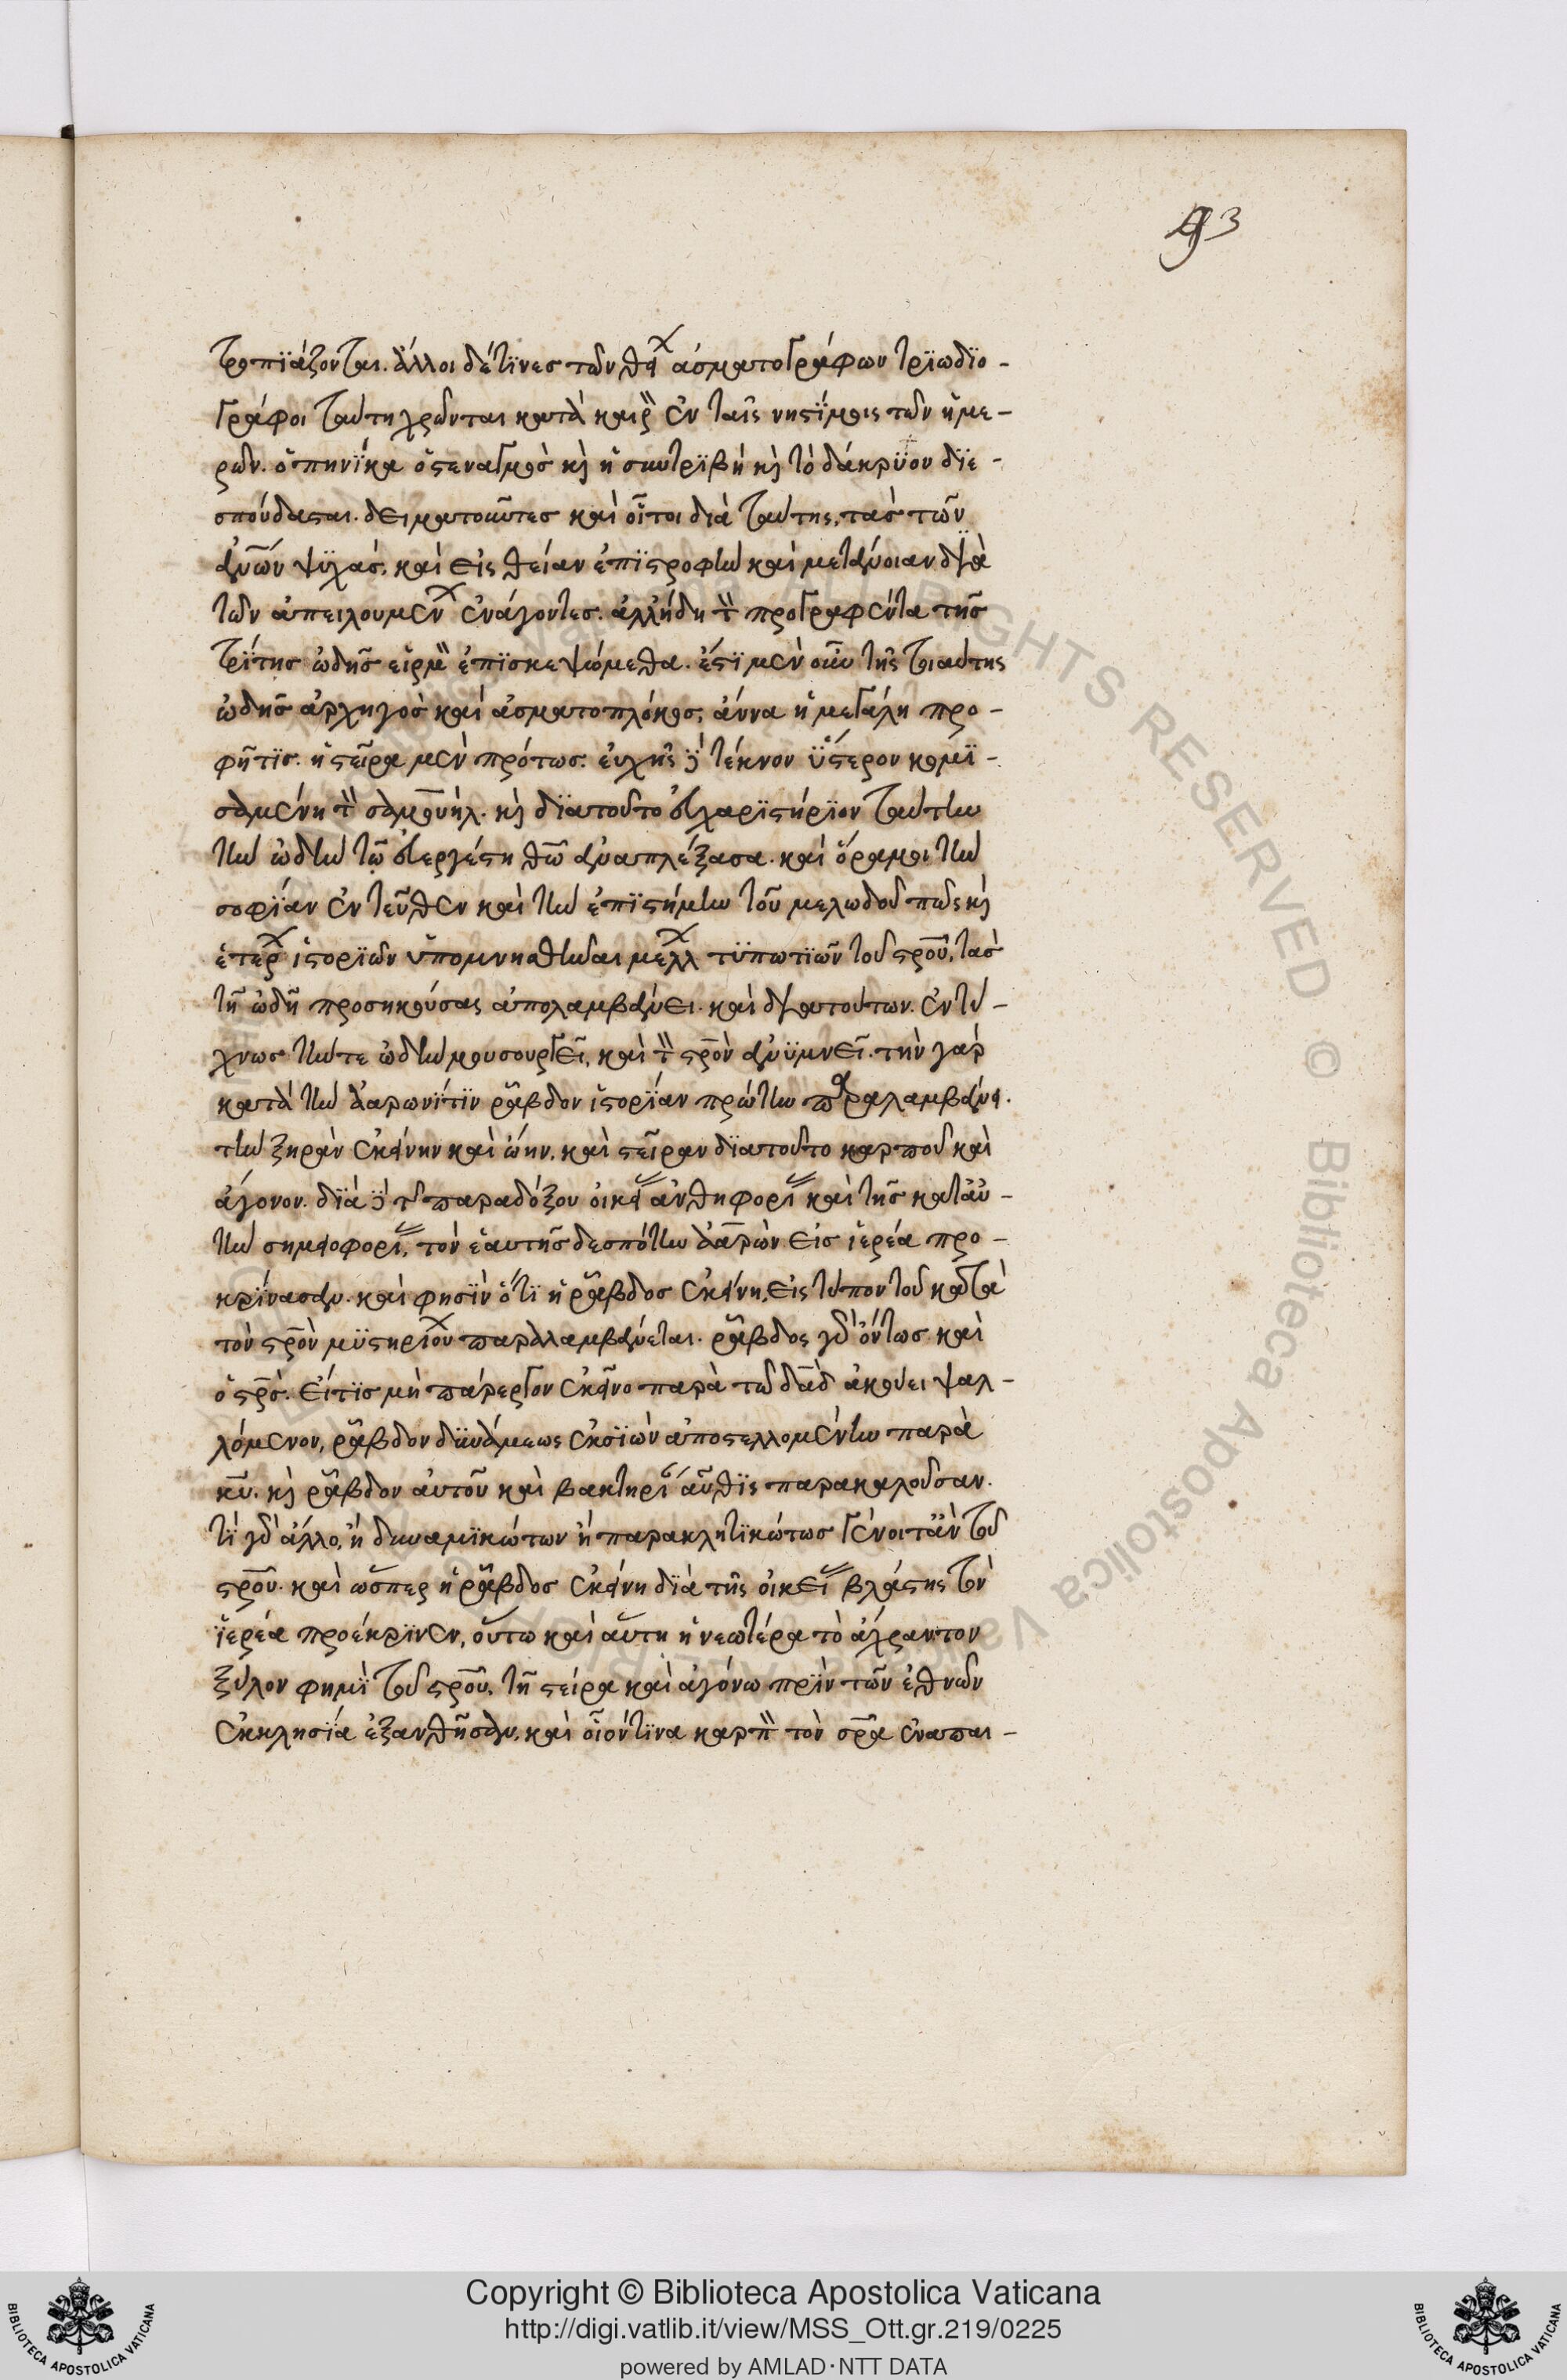 93
τοπϊάζονται. ἄλλοι δέ τινες τῶν θείων ἀσματογράφων τρϊωδϊο-
γράφοι ταύτη χρῶνται κατὰ καιρὸν ἐν ταῖς νηστίμοις τῶν ἡμε-
ρῶν. ὁπηνίκα ὁ στεναγμὸς καὶ ἡ συντρϊβὴ καὶ τὸ δάκρυον δϊε-
σπούδασται. δειματοῦντες καὶ οὗτοι διὰ ταύτης, τὰς τῶν
ἀνῶν ψϋχάς, καὶ εἰς θείαν ἐπϊστροφὴν καὶ μετάνοιαν διὰ
τῶν ἀπειλουμένων ἐνάγοντες. ἀλλ' ἤδη τὸν προγραφέντα τῆς
τρίτης ὠδῆς εἱρμὸν ἐπϊσκεψώμεθα. ἔστϊ μὲν οὖν τῆς τοιαύτης
ὠδῆς ἀρχηγὸς καὶ ἀσματοπλόκος, ἄννα ἡ μεγάλη προ-
φῆτϊς. ἡ στεῖρα μὲν πρότως. εὐχῆς δὲ τέκνον ὕστερον κομϊ-
σαμένη τὸν σαμουήλ. καὶ δϊατοῦτο εὐχαρϊστήρϊον ταύτην
τὴν ὠδὴν τῷ εὐεργέτη θῶ ἀναπλέξασα. καὶ ὅρα μοι τὴν
σοφίαν ἐντεῦθεν καὶ τὴν ἐπϊστήμην τοῦ μελωδοῦ πῶς καὶ
ἑτέρων ἱστορϊῶν ὑπομνησθῆναι μέλλων τϋπωτϊῶν τοῦ σροῦ, τὰς
τῆ ὠδῆ προσηκούσας ἀπολαμβάνει. καὶ διατούτων. ἐντύ-
χνως τήν τε ὠδὴν μουσουργεῖ, καὶ τὸν σρὸν ἀνϋμνεῖ. τὴν γὰρ
κατὰ τὴν ἀαρωνίτϊν ράβδον ἱστορίαν πρώτην παραλαμβάνει.
τὴν ξηρὰν ἐκείνην καὶ ὠήν, καὶ στεῖραν δϊατοῦτο καρποῦ καὶ
ἄγονον. δϊὰ δὲ τῆς παραδόξου οἰκείας ἀνθηφορίας καὶ τῆς κατ' αὐ-
τὴν σημειοφορίας, τὸν ἑαυτῆς δεσπότην ἀαρὼν εἰς ἱερέα προ-
κρίνασαν. καὶ φησϊν ὅτϊ ἡ ράβδος ἐκείνη, εἰς τύπον τοῦ κατὰ
τὸν σρὸν μϋστηρίου παραλαμβάνεται. ράβδος γὰρ ὄντως καὶ
ὁ σρός. εἴ τϊς μὴ πάρεργον ἐκεῖνο παρὰ τῶ δαδ ἀκούει ψαλ-
λόμενον, ράβδον δϋνάμεως ἐκ σϊὼν ἀποστελλομένην παρὰ
κυ. καὶ ράβδον αὐτοῦ καὶ βακτηρίαν αὖθϊς παρακαλοῦσαν.
τί γὰρ ἄλλο, ἢ δυναμϊκώτων ἢ παρακλητϊκώτως γένοιτ' ἂν τοῦ
σροῦ. καὶ ὥσπερ ἡ ράβδος ἐκείνη δϊὰ τῆς οἰκείας βλάστης τὸν
ἱερέα προέκρϊνεν, οὕτω καὶ αὕτη ἡ νεωτέρα τὸ ἄχραντον
ξύλον φημὶ τοῦ σροῦ, τῆ στείρα καὶ ἀγόνω πρὶν τῶν ἐθνῶν
ἐκκλησία ἐξανθῆσαν, καὶ οἱόν τϊνα καρπὸν τὸν σρα ἐναπαι-
Copyright © Biblioteca Apostolica Vaticana
http://digi.vatlib.it/view/MSS_Ott.gr.219/0225
powered by AMLAD·NTT DATA
BIBLIOTECA APOSTOLICA VATICANA
BIBLIOTECA APOSTOLICA VATICANA